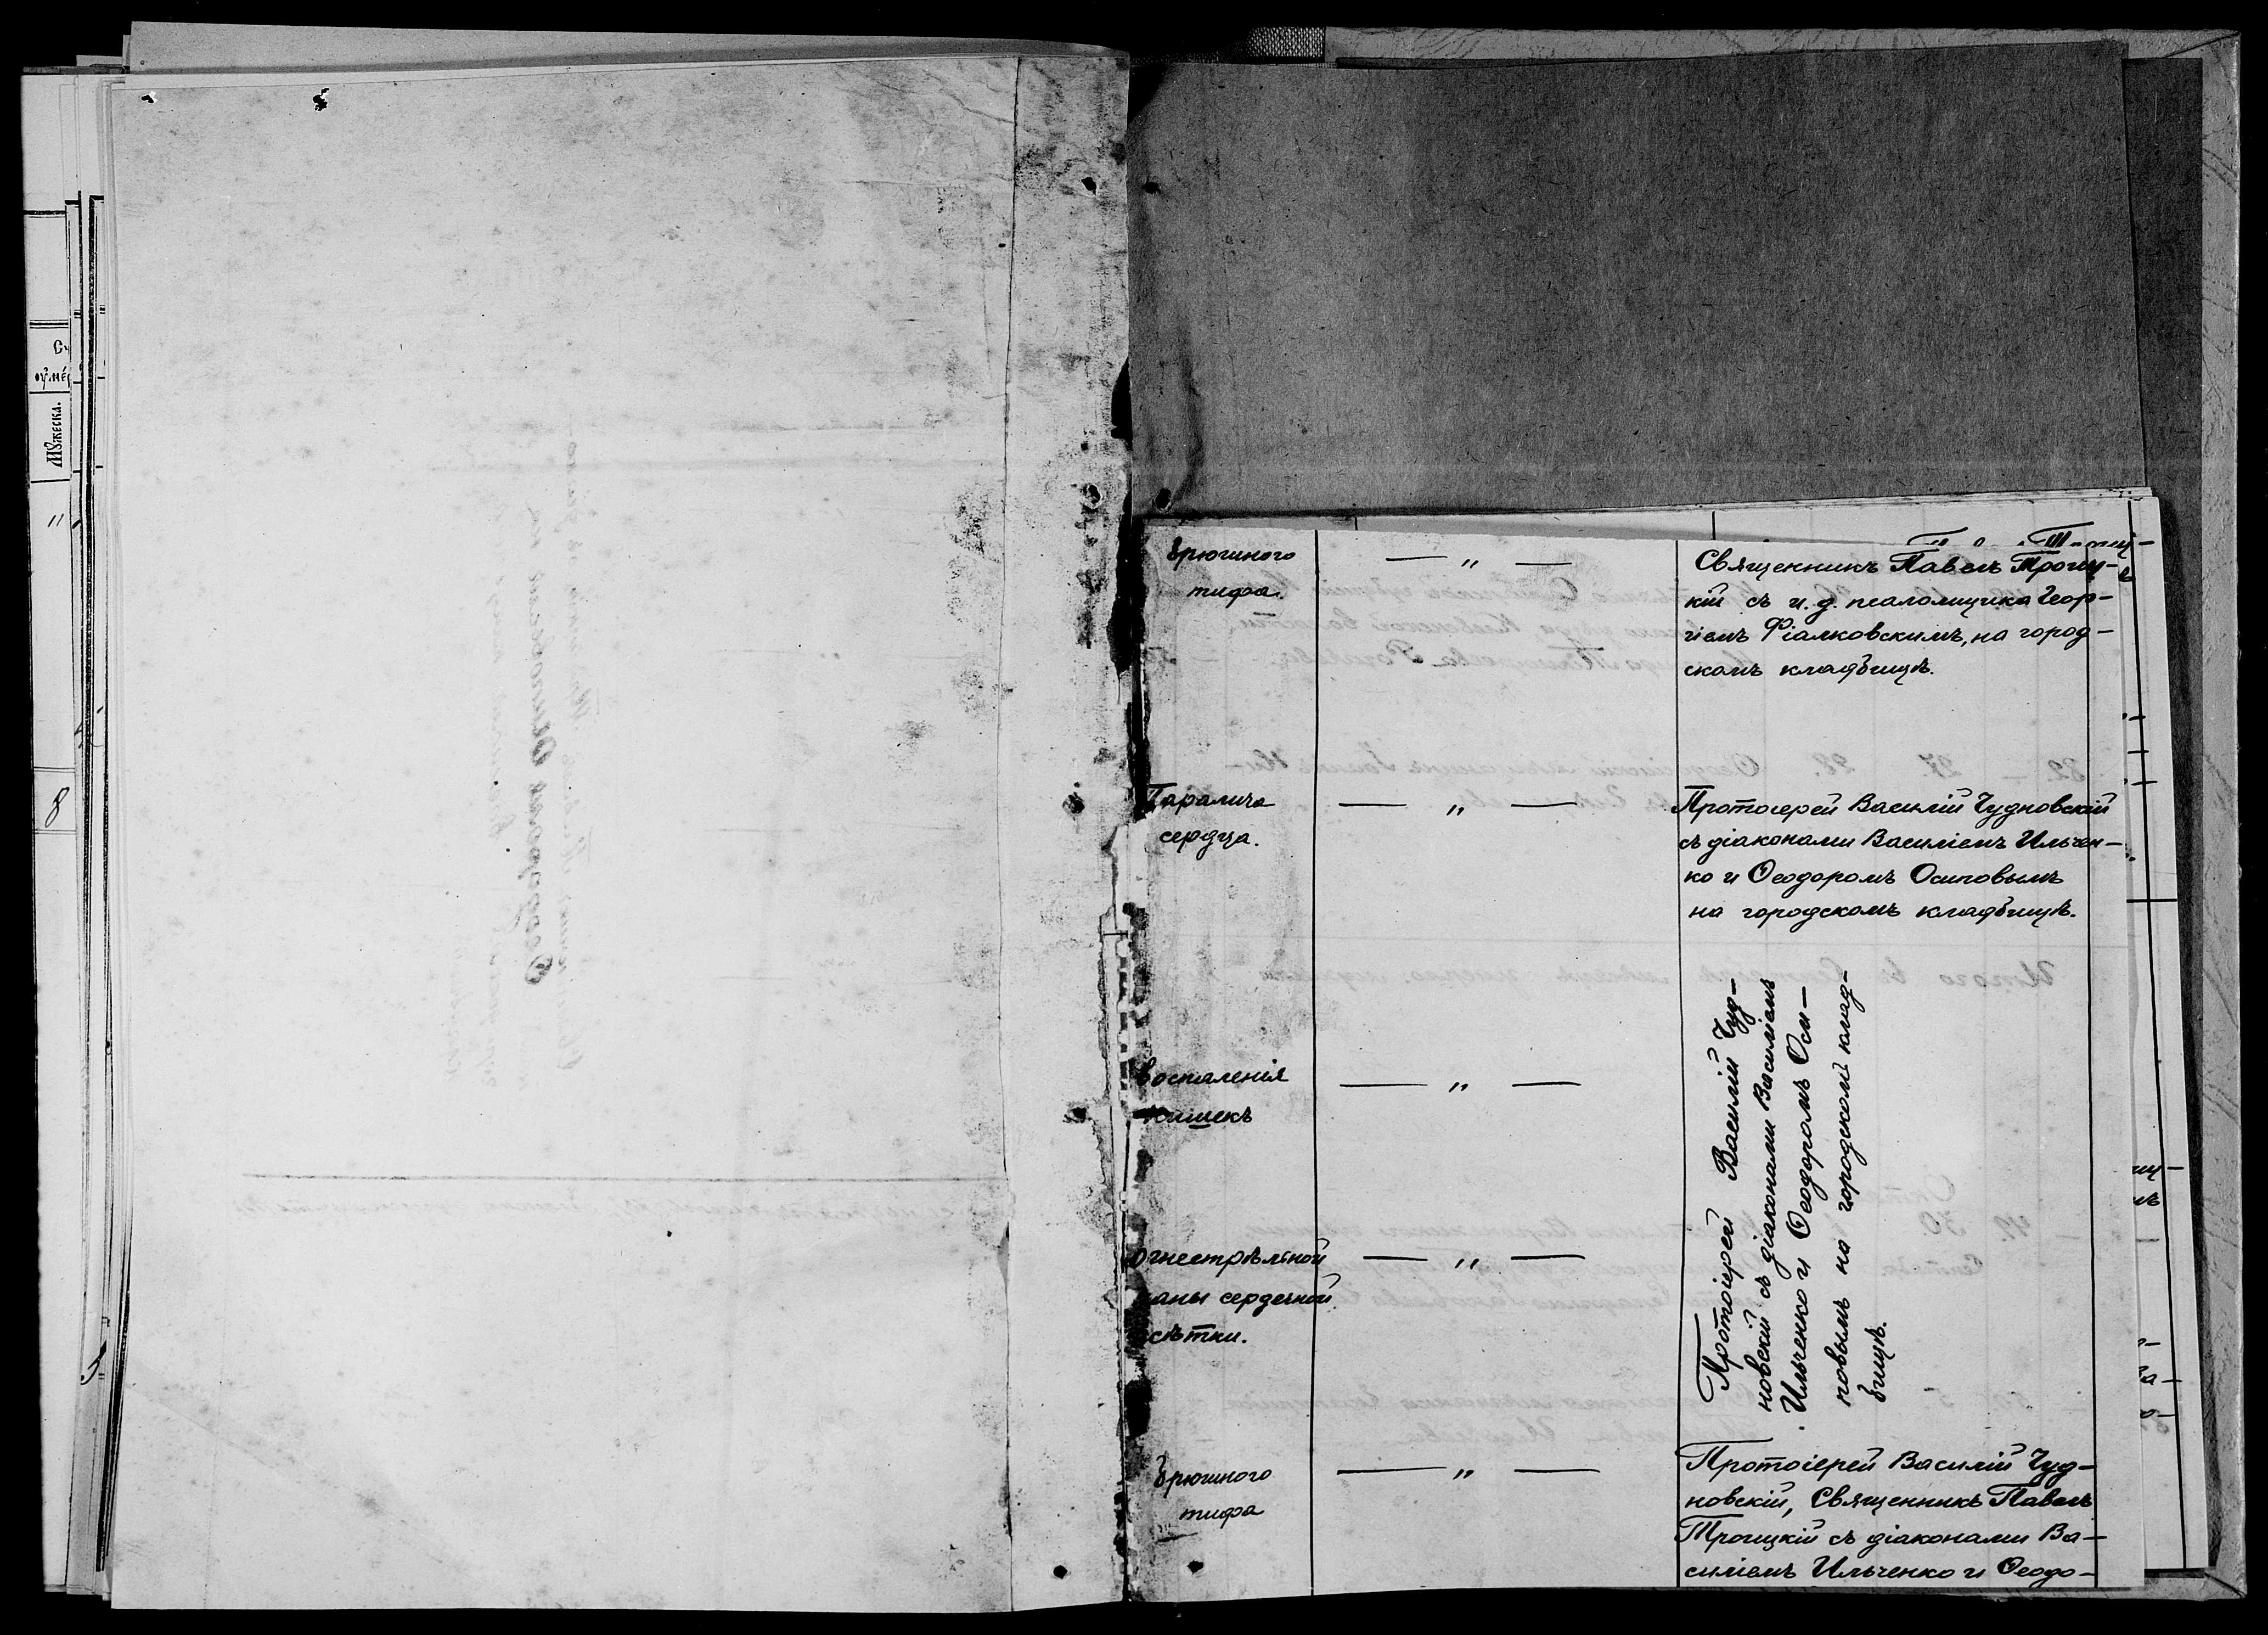 Мꙋжеска.
8
брюшного
тифа.
— " —
Священникъ Павелъ Троиц-
кій съ и. д. псаломщика Геор-
гіемъ Фіалковскимъ, на город-
скомъ кладбищѣ.
Паралича
сердца.
— " —
Протоіерей Василій Чудновскій
съ діаконами Василіемъ Ильчен-
ко и Ѳеодоромъ Осиповымъ
на городскомъ кладбищѣ.
Воспаленія
кишекъ
— " —
Огнестрѣльной
раны сердечной
сѣтки.
— " —
Протоіерей Василій Чуд-
новскій съ діаконами Василіемъ
Ильченко и Ѳеодоромъ Оси-
повымъ на городскомъ клад-
бищѣ.
брюшного
тифа
— " —
Протоіерей Василій Чуд-
новскій, Священникъ Павелъ
Троицкій съ діаконами Ва-
силіемъ Ильченко и Ѳеодо-